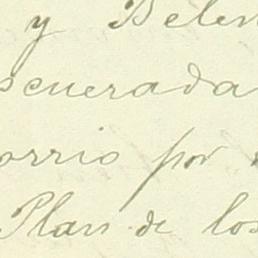 y Belen
scuerada
orrio por
Plan de los